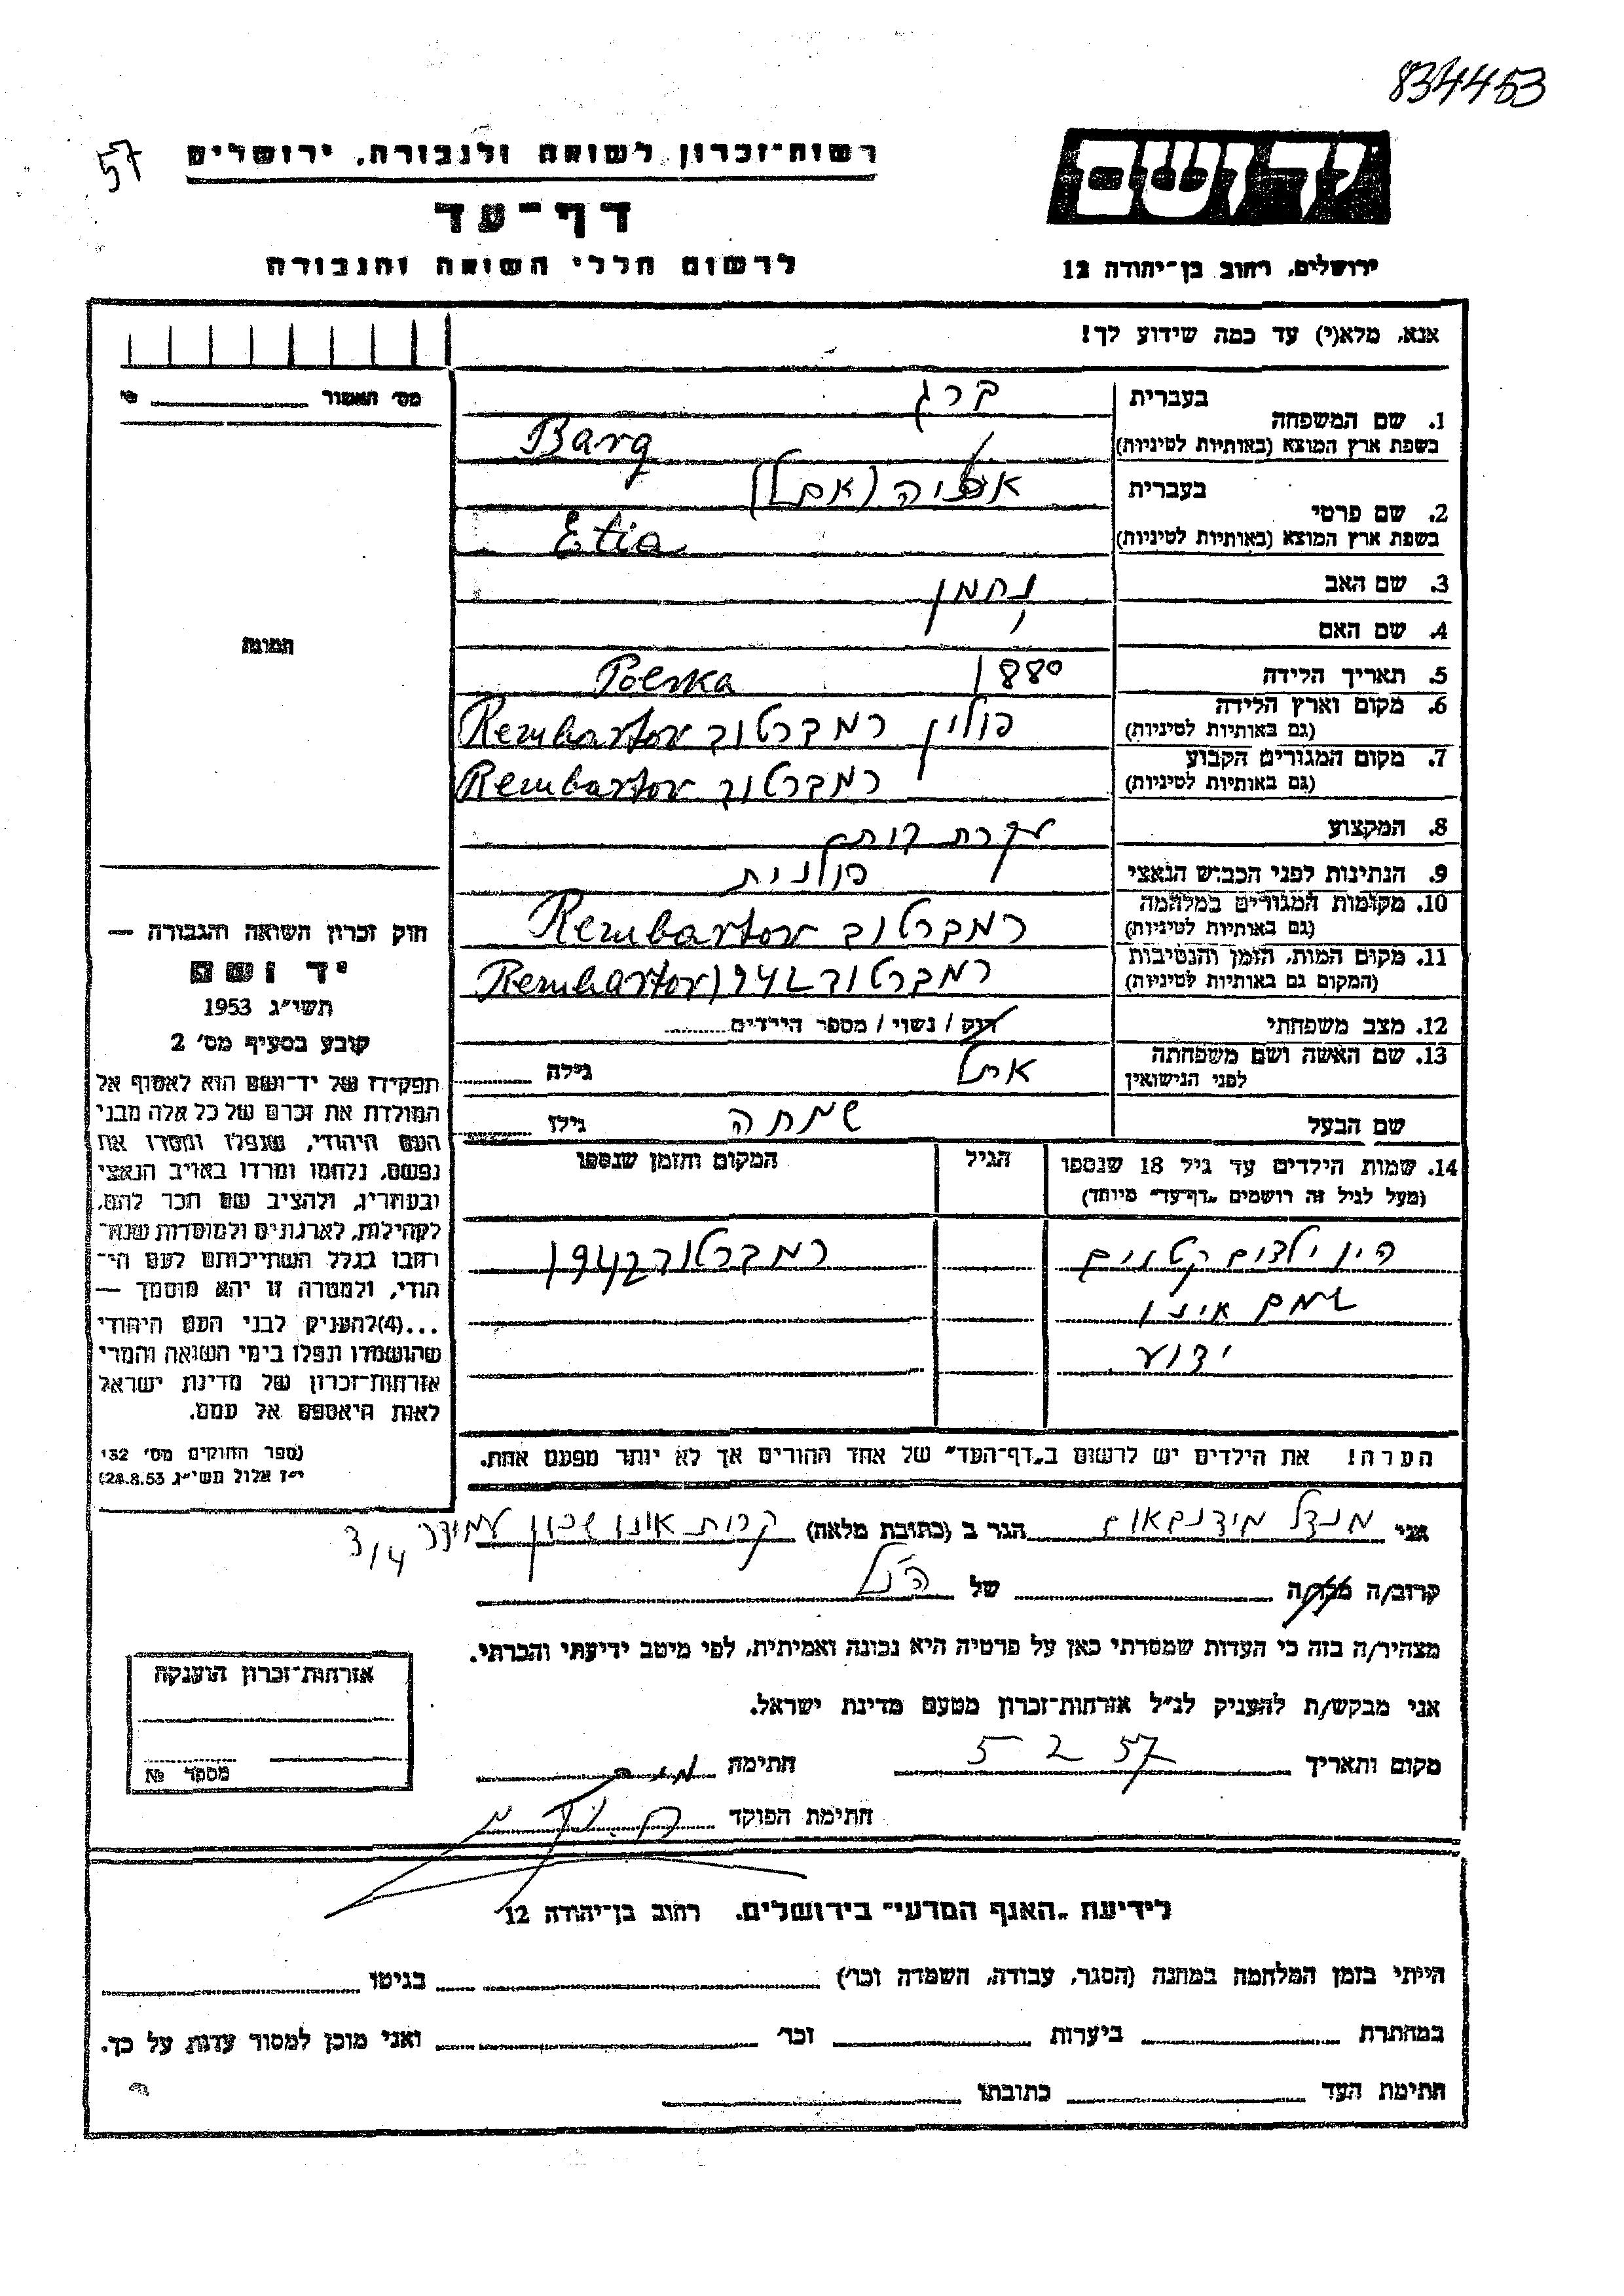 834453
57
רשות־זכרון לשואה ולגבורה, ירושלים
יד ושם
דף־עד
לרשום חללי השואה והגבורה
ירושלים, רחוב בן־יהודה 12
אנא, מלא(י) עד כמה שידוע לך!
מס׳ האשור
1. שם המשפחה
בעברית
ברג
בשפת ארץ המוצא (באותיות לטיניות)
Barg
2. שם פרטי
בעברית
בשפת ארץ המוצא (באותיות לטיניות)
Etia
3. שם האב
נחמן
4. שם האם
5. תאריך הלידה
1880
Polska
6. מקום וארץ הלידה
(גם באותיות לטיניות)
פולין רמברטוב Rembartov
7. מקום המגורים הקבוע
(גם באותיות לטיניות)
רמברטוב Rembartov
8. המקצוע
עקרת בית
9. הנתינות לפני הכבוש הנאצי
פולנית
10. מקומות המגורים במלחמה
(גם באותיות לטיניות)
רמברטוב Rembartov
11. מקום המות, הזמן והנסיבות
(המקום גם באותיות לטיניות)
רמברטוב 1942 Rembartov
12. מצב משפחתי
רוק / נשוי / מספר הילדים
13. שם האשה ושם משפחתה
לפני הנישואין
אתל
גילה
שם הבעל
שמחה
גילו
14. שמות הילדים עד גיל 18 שנספו
(מעל לגיל זה רושמים „דף־עד״ מיוחד)
הגיל
המקום והזמן שנספו
היו ילדים קטנים
רמברטוב 1942
שמם אינו
ידוע
הערה! את הילדים יש לרשום ב„דף־העד״ של אחד ההורים אך לא יותר מפעם אחת.
תמונה
חוק זכרון השואה והגבורה —
יד ושם
תשי״ג 1953
קובע בסעיף מס׳ 2
תפקידו של יד־ושם הוא לאסוף אל
המולדת את זכרם של כל אלה מבני
העם היהודי, שנפלו ומסרו את
נפשם, נלחמו ומרדו באויב הנאצי
ובעוזריו, ולהציב שם וזכר להם,
לקהילות, לארגונים ולמוסדות שנח־
רבו בגלל השתייכותם לעם הי־
הודי, ולמטרה זו יהא מוסמך —
...(4)להעניק לבני העם היהודי
שהושמדו ונפלו בימי השואה והמרי
אזרחות־זכרון של מדינת ישראל
לאות היאספם אל עמם.
(ספר החוקים מס׳ 132
י״ז אלול תשי״ג 28.8.53)
אני מנדל
הגר ב (כתובת מלאה) קרית אונו שכון עמידר 3/4
קרוב/ה מכר/ה
של הנ״ל
מצהיר/ה בזה כי העדות שמסרתי כאן על פרטיה היא נכונה ואמיתית, לפי מיטב ידיעתי והכרתי.
אני מבקש/ת להעניק לנ״ל אזרחות־זכרון מטעם מדינת ישראל.
מקום ותאריך 5 2 57
חתימה
חתימת הפוקד
אזרחות־זכרון הוענקה
מספר №
לידיעת „האגף המדעי״ בירושלים. רחוב בן־יהודה 12
הייתי בזמן המלחמה במחנה (הסגר, עבודה, השמדה וכו׳)
בגיטו
במחתרת
ביערות
וכו׳
ואני מוכן למסור עדות על כך.
חתימת העד
כתובתו